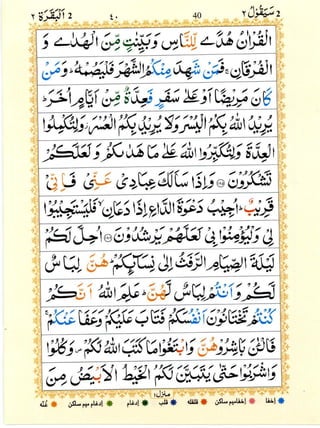 ٢ اَلْبَقَرَة 2 ٤٠ 40 سَيَقُوْلُ ٢ 2
الْقُرْاٰنُ هُدًى لِّلنَّاسِ وَ بَيِّنٰتٍ مِّنَ الْهُدٰى وَ
الْفُرْقَانِ ۚ فَمَنْ شَهِدَ مِنْكُمُ الشَّهْرَ فَلْيَصُمْهُ ؕ وَ مَنْ
كَانَ مَرِيْضًا اَوْ عَلٰى سَفَرٍ فَعِدَّةٌ مِّنْ اَيَّامٍ اُخَرَ ؕ
يُرِيْدُ اللّٰهُ بِكُمُ الْيُسْرَ وَلَا يُرِيْدُ بِكُمُ الْعُسْرَ ؗ وَلِتُكْمِلُوا
الْعِدَّةَ وَ لِتُكَبِّرُوا اللّٰهَ عَلٰى مَا هَدٰىكُمْ وَ لَعَلَّكُمْ
تَشْكُرُوْنَ وَ اِذَا سَاَلَكَ عِبَادِيْ عَنِّيْ فَاِنِّيْ
قَرِيْبٌ ؕ اُجِيْبُ دَعْوَةَ الدَّاعِ اِذَا دَعَانِ ۙ فَلْيَسْتَجِيْبُوْا
لِيْ وَلْيُؤْمِنُوْا بِيْ لَعَلَّهُمْ يَرْشُدُوْنَ اُحِلَّ لَكُمْ
لَيْلَةَ الصِّيَامِ الرَّفَثُ اِلٰى نِسَآئِكُمْ ؕ هُنَّ لِبَاسٌ
لَّكُمْ وَ اَنْتُمْ لِبَاسٌ لَّهُنَّ ؕ عَلِمَ اللّٰهُ اَنَّكُمْ
كُنْتُمْ تَخْتَانُوْنَ اَنْفُسَكُمْ فَتَابَ عَلَيْكُمْ وَعَفَا عَنْكُمْ ۚ
فَالْـٰٔنَ بَاشِرُوْهُنَّ وَابْتَغُوْا مَا كَتَبَ اللّٰهُ لَكُمْ ۪ وَ كُلُوْا
وَاشْرَبُوْا حَتّٰى يَتَبَيَّنَ لَكُمُ الْخَيْطُ الْاَبْيَضُ مِنَ
منزل ١
اخفا اخفا میم ساکن قلقلہ قلب ادغام ادغام میم ساکن غنّہ